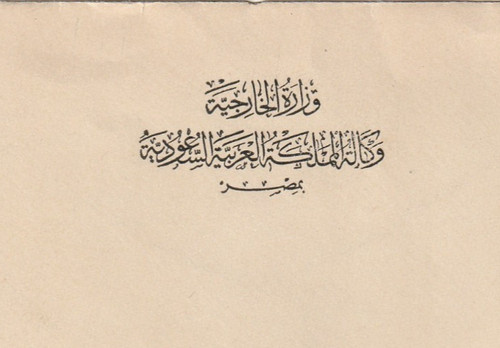 وزارة الخارجية
وكالة المملكة العربية السعودية
بمصر